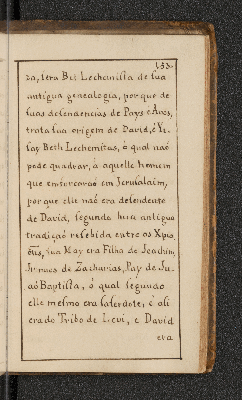 153.
da, sera Bet Lechemista de sua
antigua genealogia, porque de
suas desendencias de Pays é Avos,
trata sua origem de David, é Yi-
say Beth Lechemitas, ó qual naõ
pode quadrar, á aquelle homem
que enforcaraõ em Jerusalaim,
porque elle naõ era desendente
de David, segundo hua antigua
tradiçaõ resebida entre os Xpia-
õns, sua May era Filha de Joachim,
Irmaõ de Zacharias, Pay de Ju-
aõ Baptista, ó qual segundo
elle mesmo era saserdote, é asi
era do Tribo de Levi, e David
era